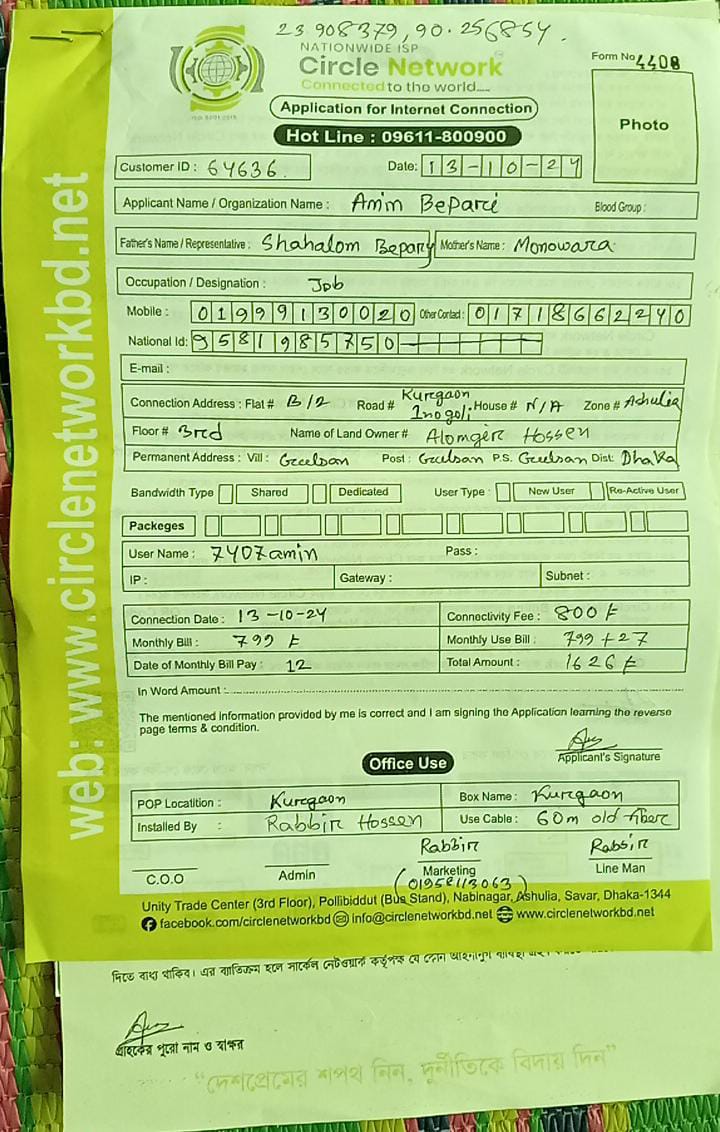 23.908379, 90.256854.
NATIONWIDE ISP
Circle Network
Connected to the world.....
ISO 9001:2015
Form No 4408
Application for Internet Connection
Hot Line : 09611-800900
Photo
web: www.circlenetworkbd.net
Customer ID : 64636. Date: 13-10-24
Applicant Name / Organization Name : Amin Bepari Blood Group :
Father's Name / Representative : Shahalom Bepary Mother's Name : Monowara
Occupation / Designation : Job
Mobile : 01999130020 Other Contact : 01718662240
National Id: 9581985750
E-mail :
Connection Address : Flat # B/2 Road # Kurgaon Inogoli House # N/A Zone # Ashulia
Floor # 3rd Name of Land Owner # Alomgir Hossen
Permanent Address : Vill : Gulsan Post : Gulsan P.S. Gulsan Dist: Dhaka
Bandwidth Type Shared Dedicated User Type : New User Re-Active User
Packeges
User Name : 7407amin Pass :
IP : Gateway : Subnet :
Connection Date : 13-10-24 Connectivity Fee : 800 ৳
Monthly Bill : 799 ৳ Monthly Use Bill : 799 + 27
Date of Monthly Bill Pay : 12 Total Amount : 1626 ৳
In Word Amount :
The mentioned information provided by me is correct and I am signing the Application learning the reverse
page terms & condition.
Applicant's Signature
Office Use
POP Locatition : Kurgaon Box Name : Kurgaon
Installed By : Rabbir Hossen Use Cable : 60m old fiber
Rabbir Rabbir
C.O.O Admin Marketing Line Man
(01958113063)
Unity Trade Center (3rd Floor), Pollibiddut (Bus Stand), Nabinagar, Ashulia, Savar, Dhaka-1344
facebook.com/circlenetworkbd info@circlenetworkbd.net www.circlenetworkbd.net
দিতে বাধ্য থাকিব। এর ব্যতিক্রম হলে সার্কেল নেটওয়ার্ক কর্তৃপক্ষ যে কোন আইনানুগ ব্যবস্থা
গ্রাহকের পুরো নাম ও স্বাক্ষর
“দেশপ্রেমের শপথ নিন, দুর্নীতিকে বিদায় দিন”